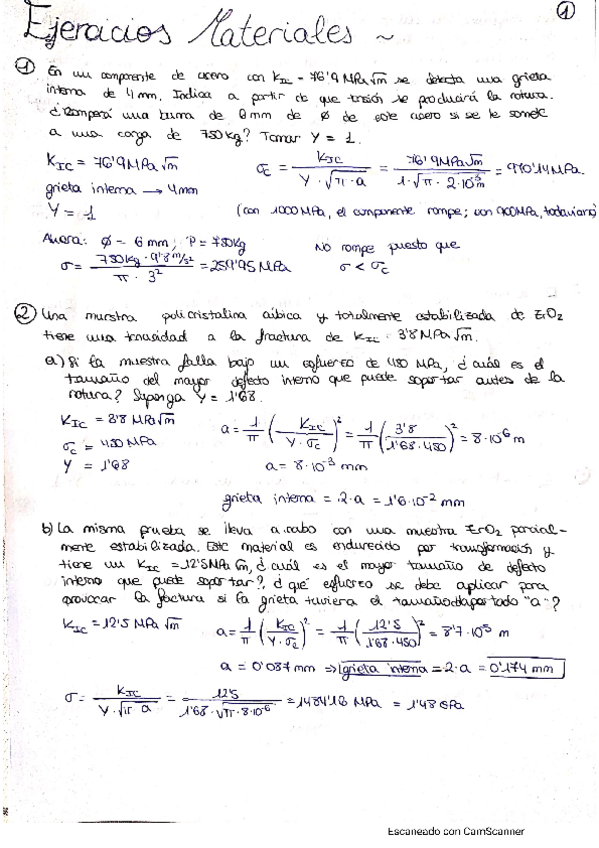 1
Ejercicios Materiales ~
1 En un componente de acero con KIC = 76'9 MPa√m se detecta una grieta
interna de 4 mm. Indica a partir de que tensión se producirá la rotura.
¿Romperá una barra de 6 mm de ø de este acero si se le somete
a una carga de 750 kg? Tomar Y = 1.
KIC = 76'9 MPa √m
σc = KIC / Y · √π · a = 76'9 MPa√m / 1 · √π · 2·10⁻³ m = 970'14 MPa.
grieta interna → 4mm
Y = 1
(con 1000 MPa, el componente rompe; con 900 MPa, todavía no)
Ahora: ø = 6 mm; P = 750 kg
No rompe puesto que
σ = 750 kg · 9'8 m/s² / π · 3² = 259'95 MPa
σ < σc
2 Una muestra policristalina cúbica y totalmente estabilizada de ZrO2
tiene una tenacidad a la fractura de KIC = 3'8 MPa √m.
a) Si la muestra falla bajo un esfuerzo de 450 MPa, ¿cuál es el
tamaño del mayor defecto interno que puede soportar antes de la
rotura? Suponga Y = 1'68.
KIC = 3'8 MPa √m
a = 1/π (KIC / Y · σc)² = 1/π (3'8 / 1'68 · 450)² = 8·10⁻⁶ m
σc = 450 MPa
Y = 1'68
a = 8·10⁻³ mm
grieta interna = 2·a = 1'6·10⁻² mm
b) La misma prueba se lleva a cabo con una muestra ZrO2 parcial-
mente estabilizada. Este material es endurecido por transformación y
tiene un KIC = 12'5 MPa √m, ¿cuál es el mayor tamaño de defecto
interno que puede soportar?, ¿qué esfuerzo se debe aplicar para
provocar la fractura si la grieta tuviera el tamaño del apartado "a"?
KIC = 12'5 MPa √m
a = 1/π (KIC / Y · σc)² = 1/π (12'5 / 1'68 · 450)² = 8'7·10⁻⁵ m
a = 0'087 mm ⇒ grieta interna = 2·a = 0'174 mm
σ = KIC / Y · √π · a = 12'5 / 1'68 · √π · 8·10⁻⁶ = 1484'16 MPa = 1'48 GPa
Escaneado con CamScanner